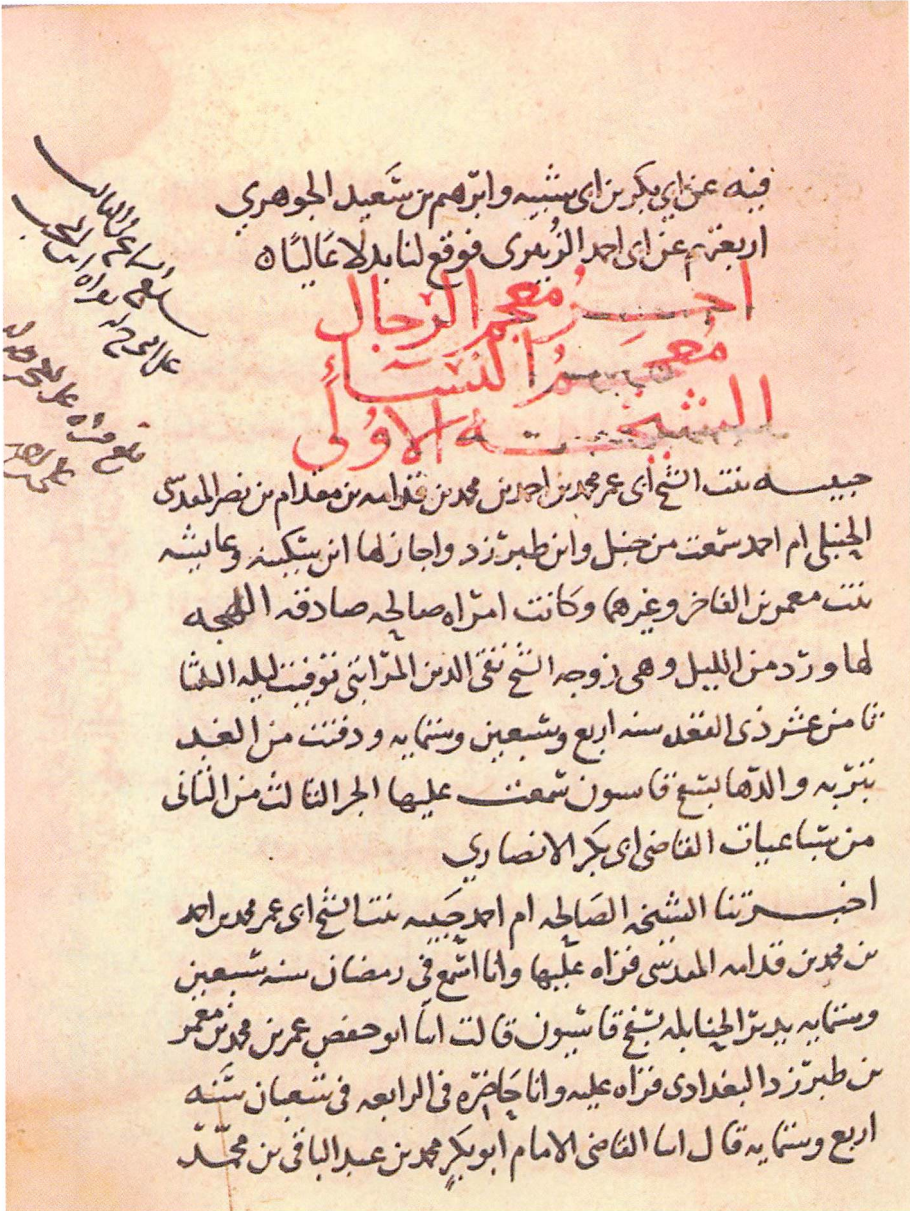 فيه عن ابي بكر بن ابي شيبه وابرهيم بن سَعيد الجوهري
اربعتهم عن ابي احمد الزُبيرى فوقع لنا بدلا عَاليًا ه
اخِـــرُ معجم الرجال
مُعجَـــمُ النسَـاءِ
الشيخـــه الاوُلىَ
حبيبـــه بنت الشيخ ابى عمر محمد بن احمد بن محمد بن قدامه بن مقدام بن نصر المقدسى
الحنبلى ام احمد سمعت من حنبل وابن طبرزد واجاز لها ابن سكينه وعايشه
بنت معمر بن الفاخر وغيرهما وكَانت امراه صالحه صادقه اللهجه
لها ورد من الليل وهى زوجه الشيخ تقى الدين المراتبى توفيت ليله الثلثا
ثامن عشر ذى القعده سنه اربع وسبعين وستمايه ودفنت من الغـد
بتربه والدها بسفح قاسون سمعت عليها الجز الثالث من الثانى
من سباعيات القاضى ابى بكر الانصاري
اخبـــرتنا الشيخه الصَالحه ام احمد حَبيبه بنت الشيخ ابى عمر محمد بن احمد
بن محمد بن قدامه المقدسى قراه عليها وانا اسمع فى رمضان سنه سبعين
وستمايه بدير الحنابله بسفح قاسيون قالت انا ابو حفص عمر بن محمد بن معمر
بن طبرزد البغدادى قراه عليه وانا حَاضره فى الرابعه فى شعبان سَنه
اربع وستمايه قال انا القاضى الامام ابو بكرٍ محمد بن عبد الباقى بن محمّـد